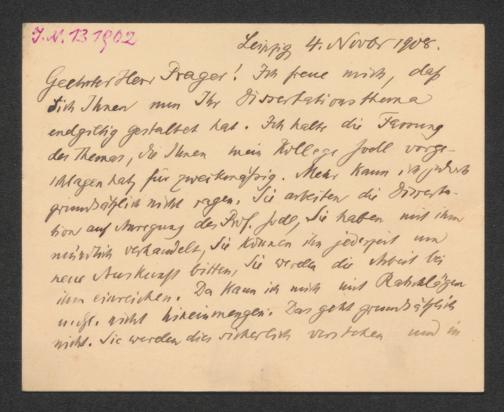 J. N. 131902
Leipzig 4. Novbr 1908.
Geehrter Herr Prager! Ich freue mich, daß
sich Ihnen nun Ihr Dissertationsthema
endgiltig gestaltet hat. Ich halte die Fassung
des Themas, die Ihnen mein Kollege Jodl vorge-
schlagen hat, für zweckmäßig. Mehr kann ich jedoch
grundsätzlich nicht sagen. Sie arbeiten die Disserta-
tion auf Anregung des Prof. Jodl, Sie haben mit ihm
mündlich verhandelt, Sie können ihn jederzeit um
neue Auskunft bitten, Sie werden die Arbeit bei
ihm einreichen. Da kann ich mich mit Ratschlägen
nicht hineinmengen. Das geht grundsätzlich
nicht. Sie werden dies sicherlich verstehen und in